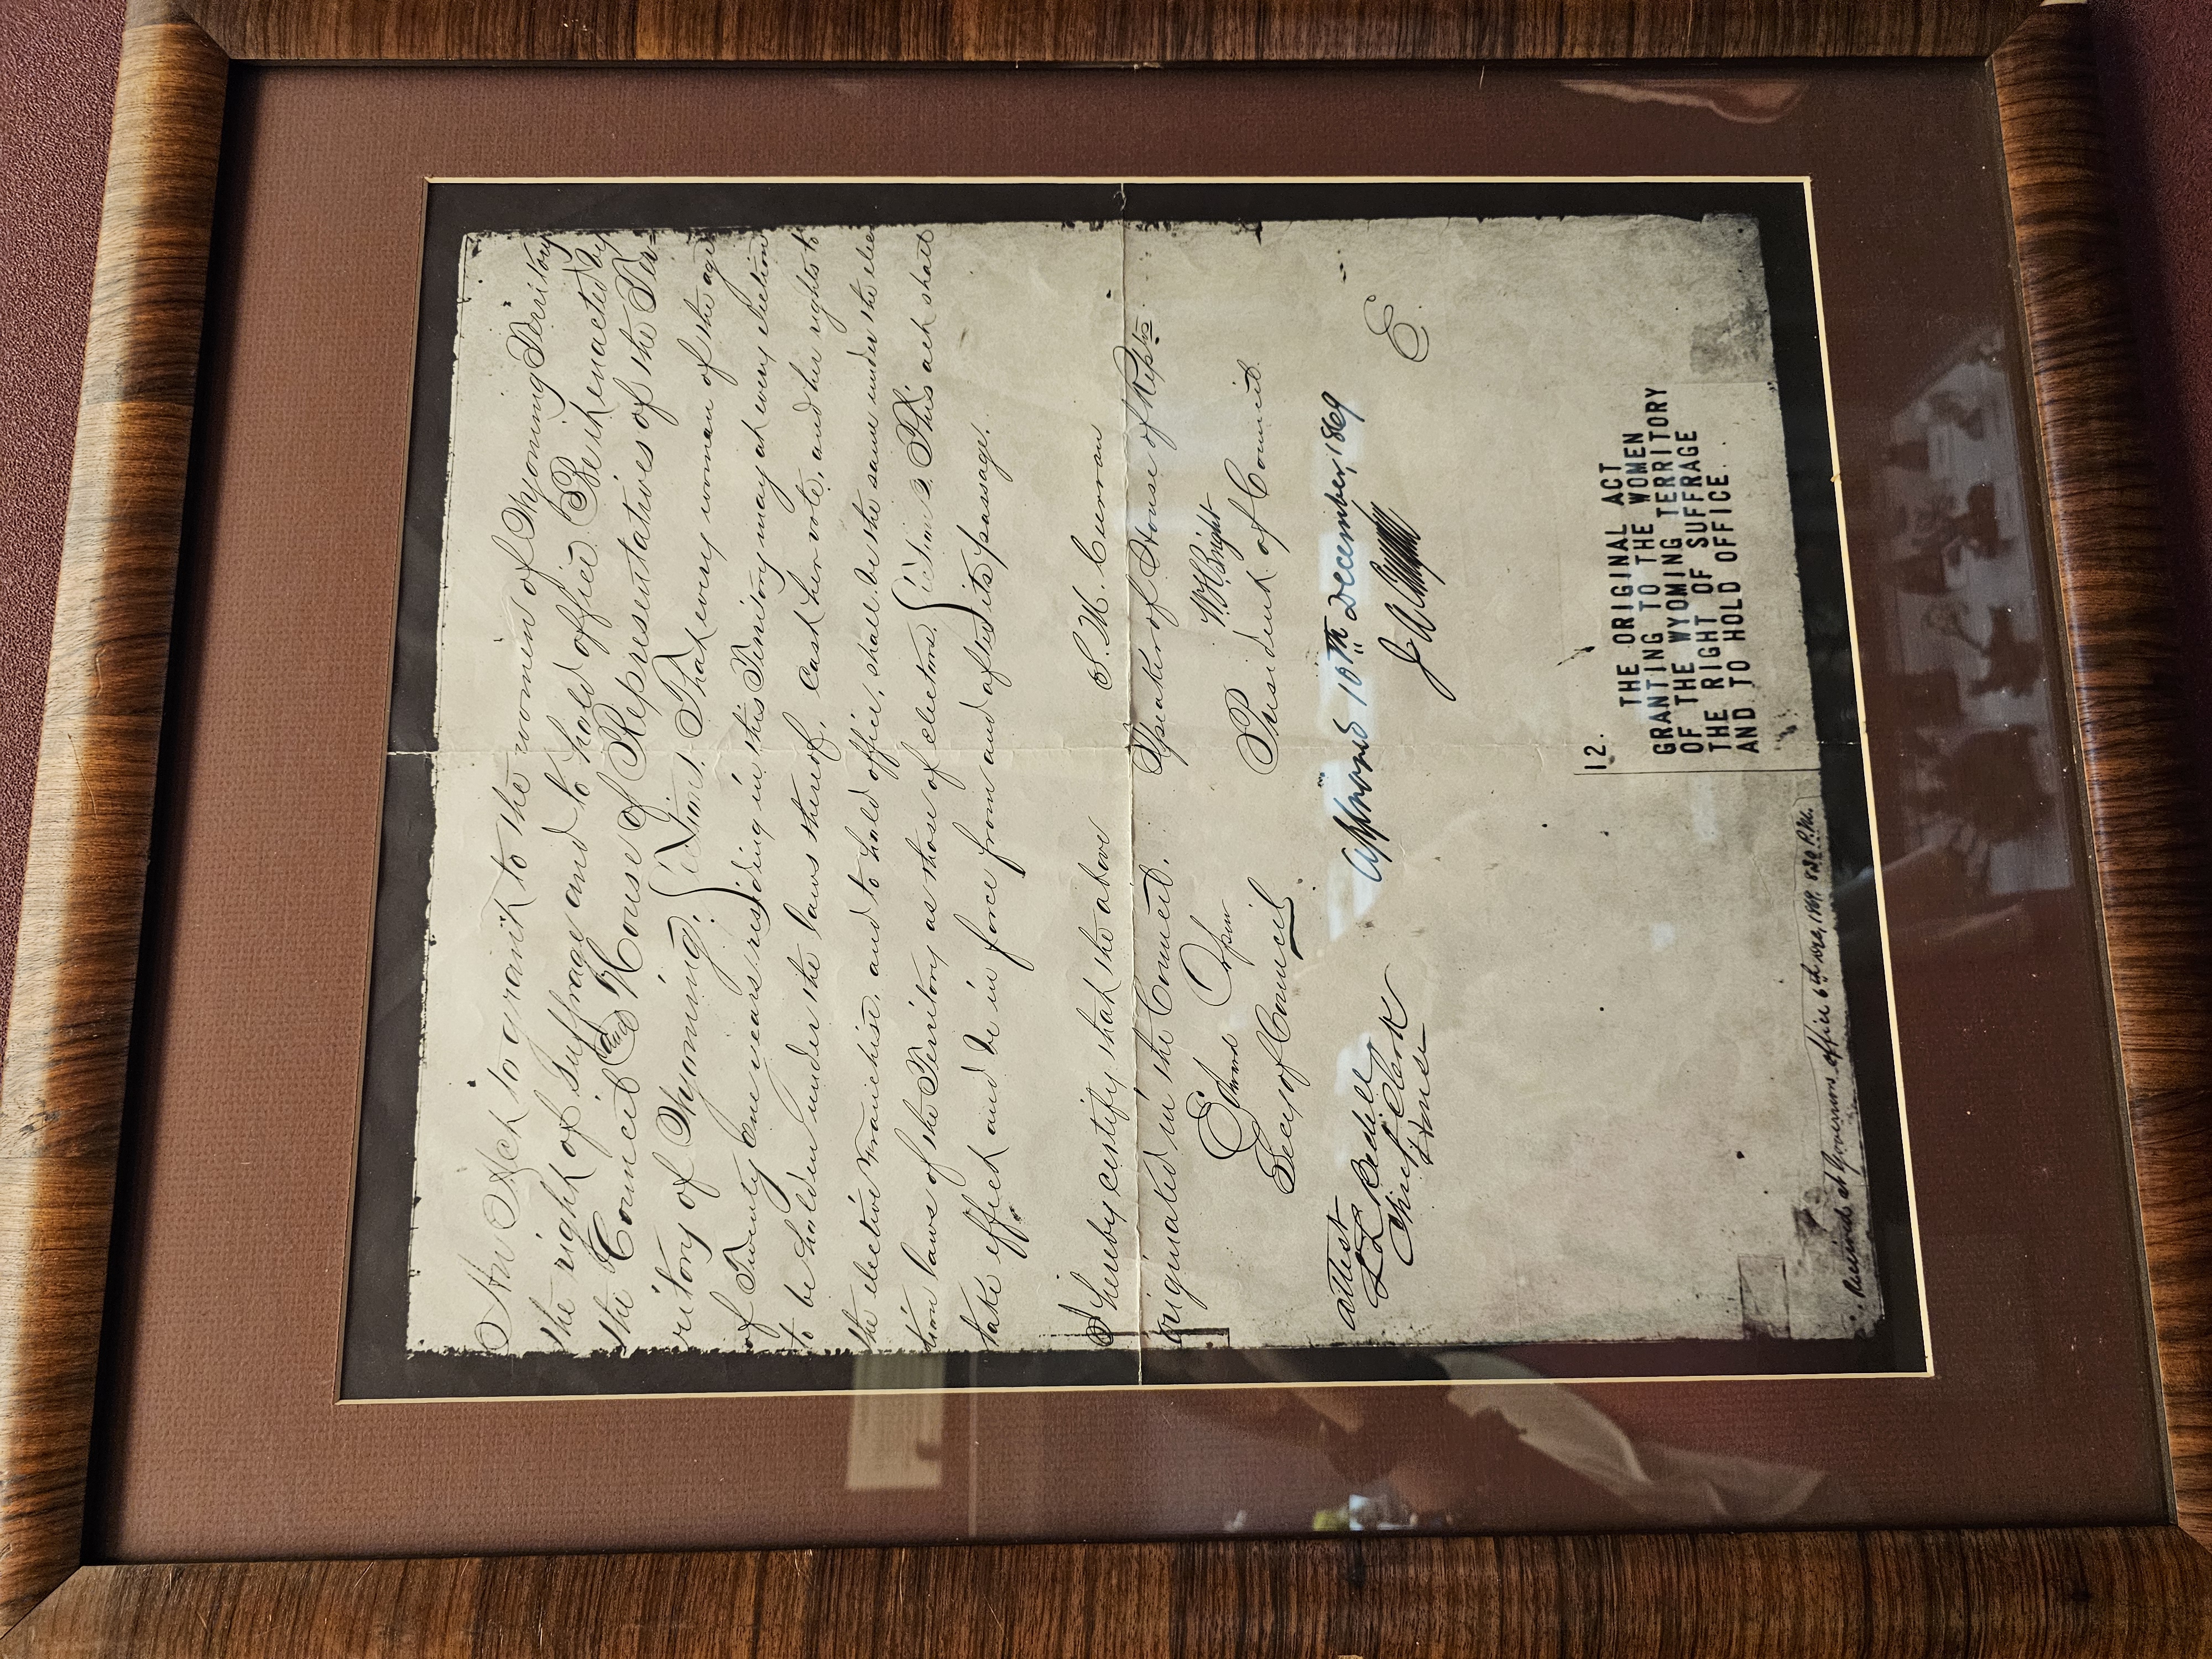 An Act to grant to the women of Wyoming Territory
the right of Suffrage and to hold office. Be it enacted by
the Council and House of Representatives of the Ter-
ritory of Wyoming. Section 1. That every woman of the age
of Twenty One years residing in this Territory may at every election
to be holden under the laws thereof, cast her vote, and her rights to
the elective franchise and to hold office, shall be the same under the elec
tion laws of the Territory as those of electors. Section 2. This act shall
take effect and be in force from and after its passage.
I hereby certify that the above
originated in the Council.
Edward Orpen
Secy of Council
S. M. Curran
Speaker of House of Repts
W. H. Bright
President of Council
Attest
L L Bedell
Chief Clerk
House
Approved 10th December, 1869
J A Campbell
E
12. THE ORIGINAL ACT
GRANTING TO THE WOMEN
OF THE WYOMING TERRITORY
THE RIGHT OF SUFFRAGE
AND TO HOLD OFFICE.
Received at Governors office 6th Dec, 1869, 8.30 P.M.